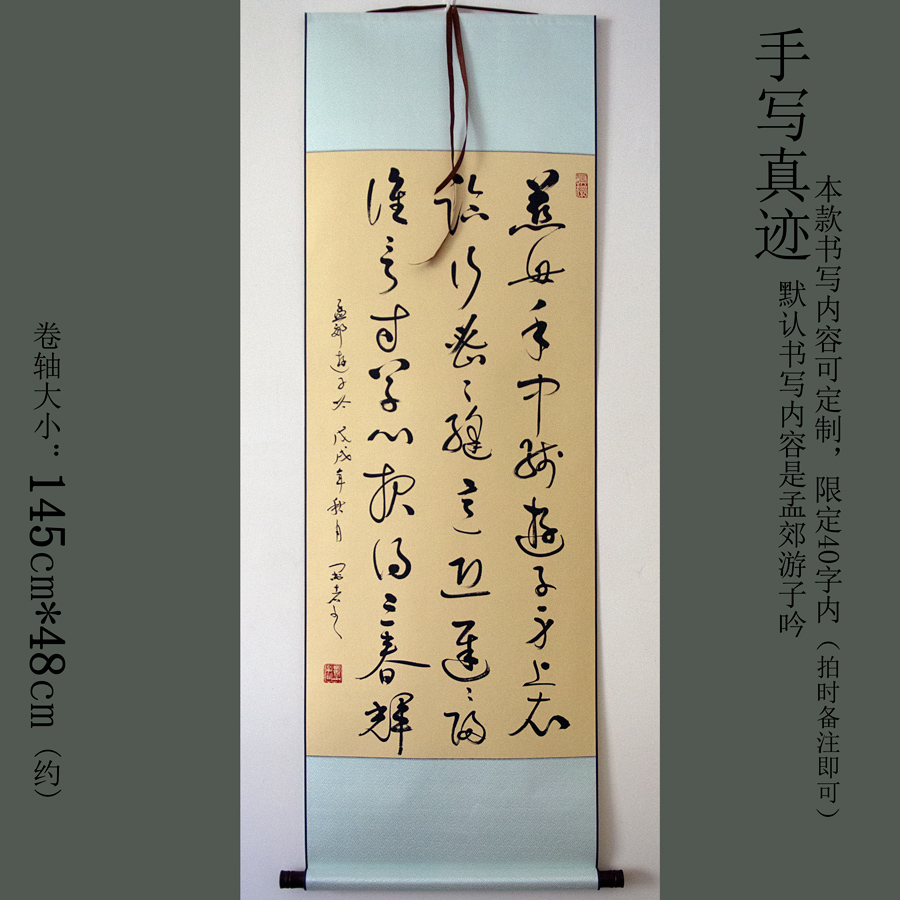 手写真迹
本款书写内容可定制，限定40字内（拍时备注即可）
默认书写内容是孟郊游子吟
慈母手中線遊子身上衣
臨行密〻縫意恐遲〻歸
誰言寸草心報得三春輝
孟郊遊子吟 戊戌年秋月
卷轴大小：145cm*48cm（约）